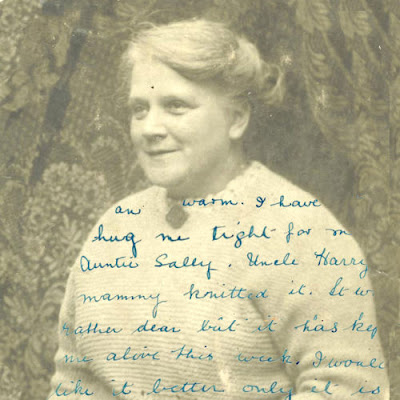 an warm. I have
hug me tight for m
Auntie Sally. Uncle Harry
mammy knitted it. It w
rather dear but it has kep
me alive this week. I would
like it better only it is